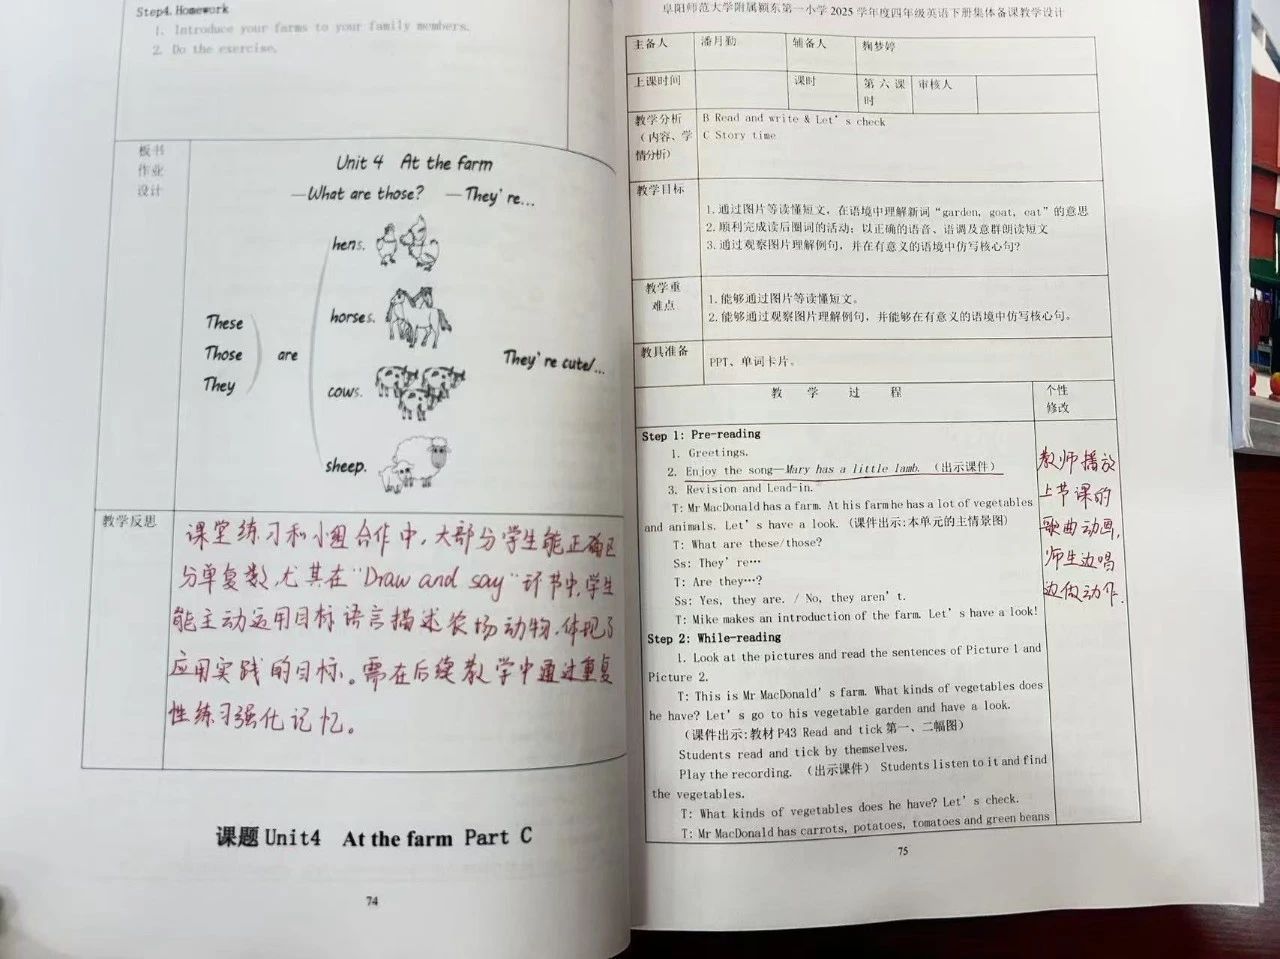 Step4.Homework
1. Introduce your farms to your family members.
2. Do the exercise.
板书
作业
设计
Unit 4 At the farm
—What are those? —They're...
hens.
horses.
These
Those
They
are
They're cute/...
cows.
sheep.
教学反思
课堂练习和小组合作中,大部分学生能正确区
分单复数,尤其在"Draw and say"环节中,学生
能主动运用目标语言描述农场动物,体现了
应用实践的目标。需在后续教学中通过重复
性练习强化记忆。
课题 Unit4 At the farm Part C
74
阜阳师范大学附属颍东第一小学2025学年度四年级英语下册集体备课教学设计
主备人 潘月勤 辅备人 鞠梦婷
上课时间 课时 第六课时 审核人
教学分析
(内容、学
情分析)
B Read and write & Let's check
C Story time
教学目标
1.通过图片等读懂短文,在语境中理解新词“garden, goat, eat”的意思
2.顺利完成读后圈词的活动;以正确的语音、语调及意群朗读短文
3.通过观察图片理解例句,并在有意义的语境中仿写核心句?
教学重
难点
1.能够通过图片等读懂短文。
2.能够通过观察图片理解例句,并能够在有意义的语境中仿写核心句。
教具准备
PPT、单词卡片。
教 学 过 程
个性
修改
Step 1: Pre-reading
1. Greetings.
2. Enjoy the song—Mary has a little lamb. (出示课件)
3. Revision and Lead-in.
T: Mr MacDonald has a farm. At his farm he has a lot of vegetables
and animals. Let's have a look. (课件出示:本单元的主情景图)
T: What are these/those?
Ss: They're…
T: Are they…?
Ss: Yes, they are. / No, they aren't.
T: Mike makes an introduction of the farm. Let's have a look!
Step 2: While-reading
1. Look at the pictures and read the sentences of Picture 1 and
Picture 2.
T: This is Mr MacDonald's farm. What kinds of vegetables does
he have? Let's go to his vegetable garden and have a look.
(课件出示:教材P43 Read and tick 第一、二幅图)
Students read and tick by themselves.
Play the recording. (出示课件) Students listen to it and find
the vegetables.
T: What kinds of vegetables does he have? Let's check.
T: Mr MacDonald has carrots, potatoes, tomatoes and green beans
教师播放
上节课的
歌曲动画,
师生边唱
边做动作.
75